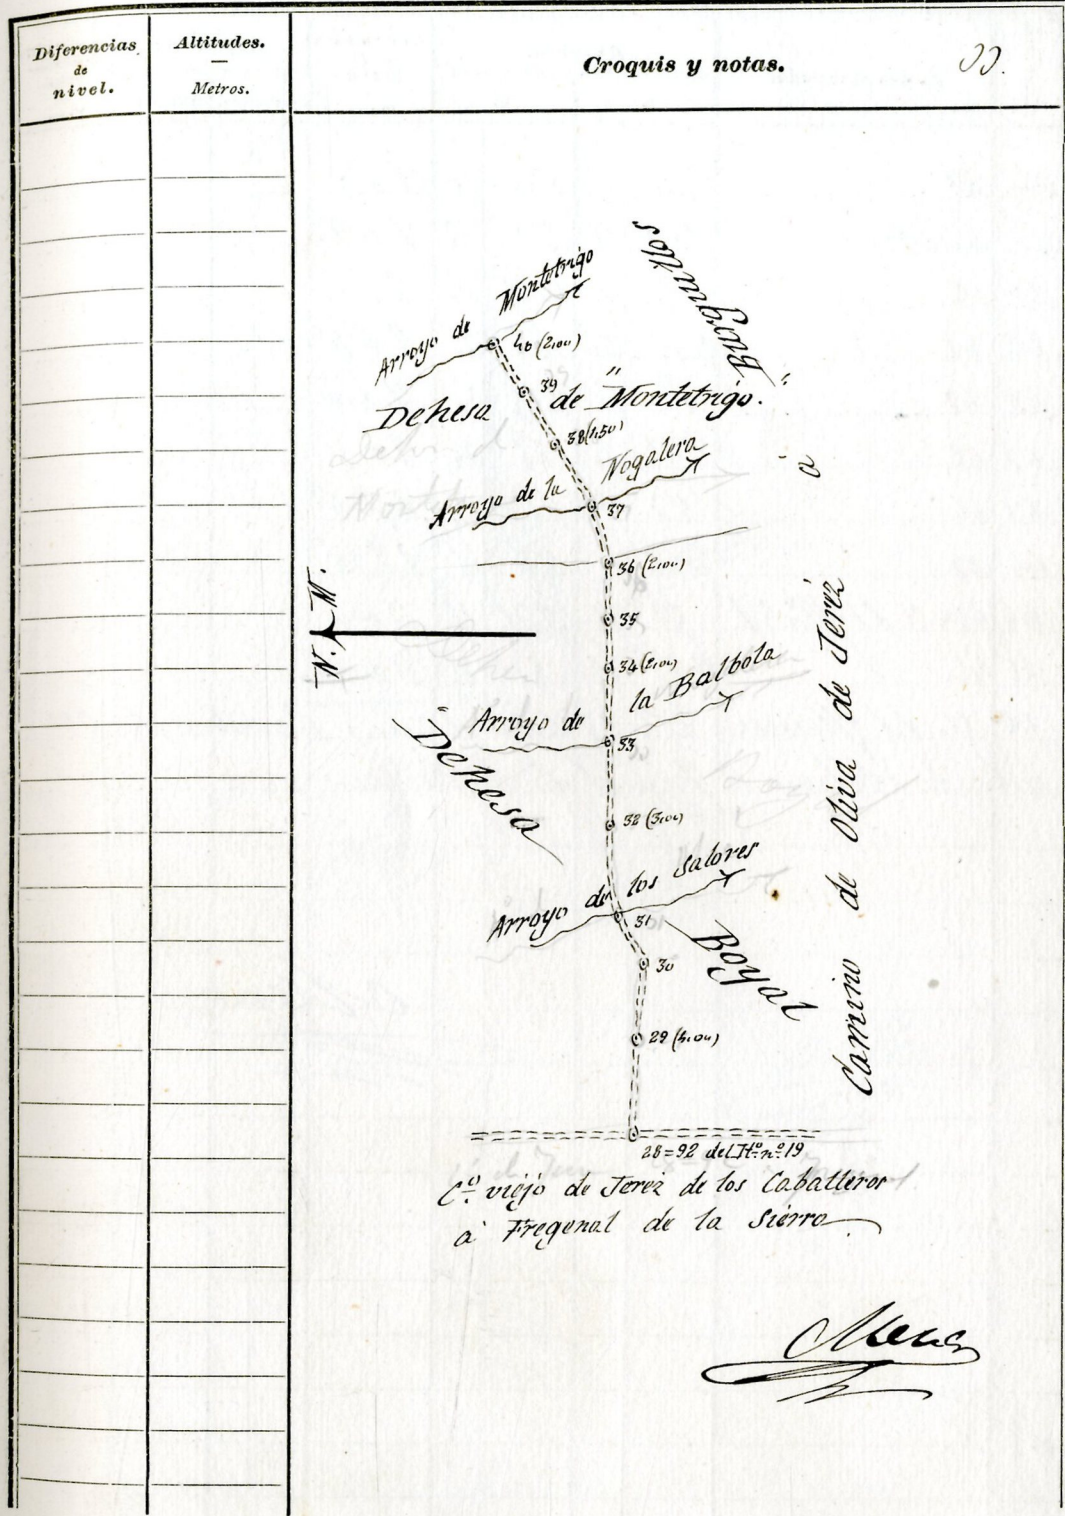 Diferencias
de
nivel.
Altitudes.
Metros.
Croquis y notas.
Burguillos"
Arroyo de Montetrigo
40 (2,00)
39
Dehesa de "Montetrigo."
38 (1,50)
Arroyo de la Nogalera
37
á
36 (2,00)
N. M.
35
34 (2,00)
Arroyo de la Balbola
33
"Dehesa
32 (3,00)
Arroyo de los Salores
31
Boyal
30
Camino de Oliva de Jeréz
29 (4,00)
28=92 del It.º n.º 19
C.º viejo de Jeréz de los Caballeros
á Fregenal de la Sierra.